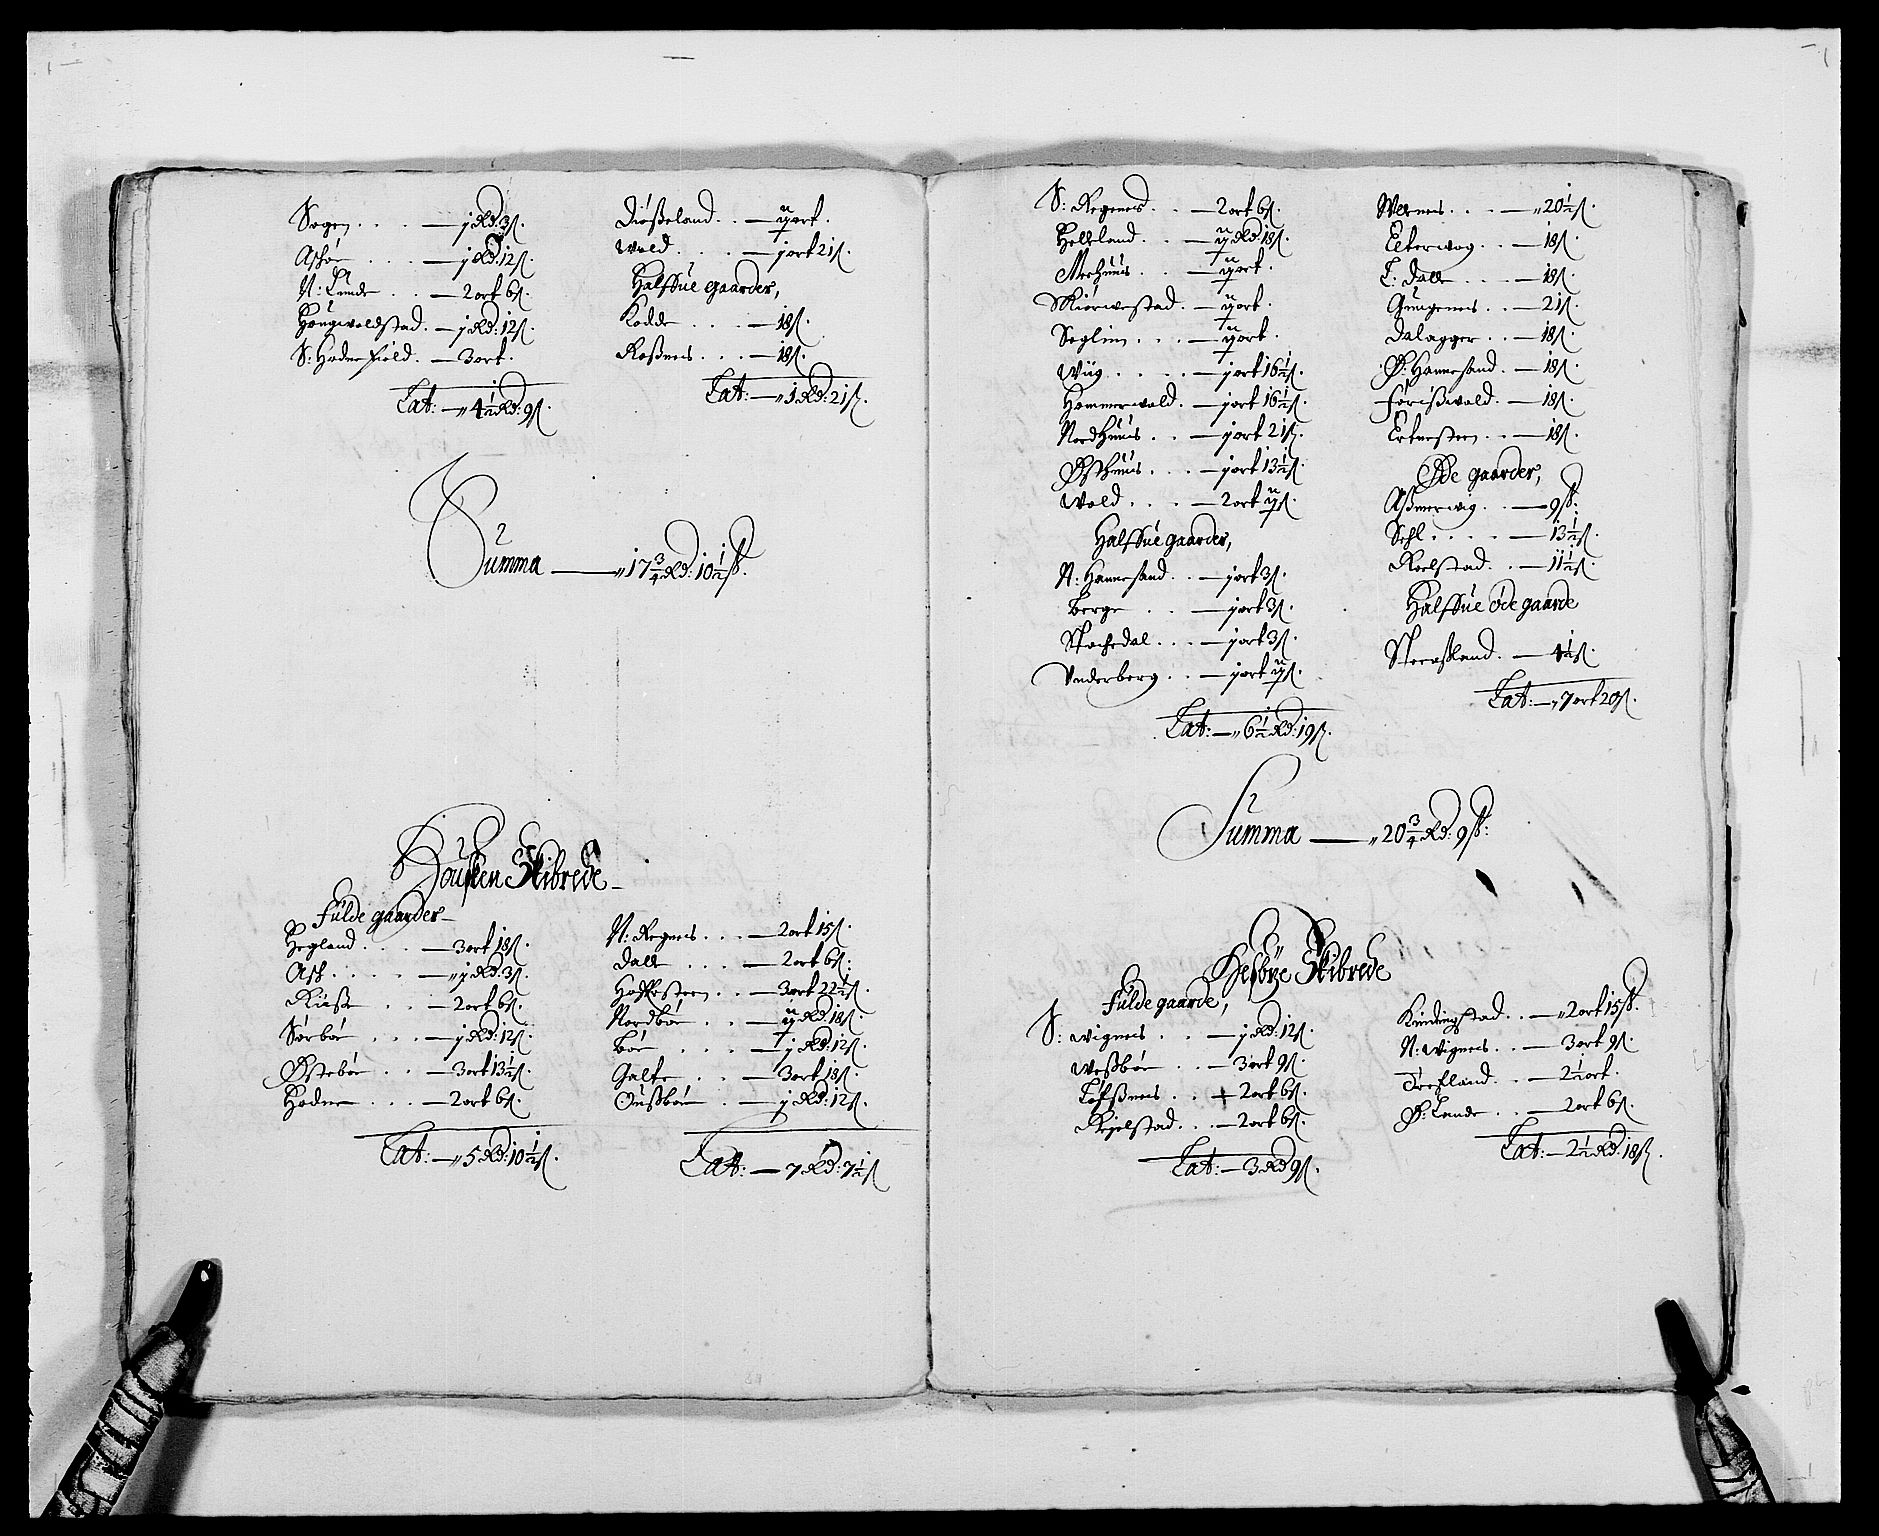 Sogen . . . . — j Rd: 3 ß.
Aschøe . . . — j Rd: 12 ß.
N: Lunde . . — 2 ort 6 ß.
Hougwaldstad. — j Rd: 12 ß.
S: Hodnefield. — 3 ort.
Lat: — „ 4 1/2 Rd: 9 ß.
Diøßeland. . — ij ort.
Wold . . . . — j ort 21 ß.
Halffue gaarder,
Kodde . . . — 18 ß.
Roßnes . . . — 18 ß.
Lat: — „ 1 Rd: 21 ß.
Summa — „ 17 3/4 Rd: 10 1/2 ß.
Housken Skibrede
Fulde gaarder
Hegland . . . — 3 ort 18 ß.
Ask . . . . — „ j Rd: 3 ß.
Riiße . . . — 2 ort 6 ß.
Sørbøe . . . — j Rd: 12 ß.
Østebøe . . — 3 ort 13 1/2 ß.
Hodne . . . — 2 ort 6 ß.
Lat: — „ 5 Rd: 10 1/2 ß.
N: Regnes . . . — 2 ort 15 ß.
Dalle . . . — 2 ort 6 ß.
Hodkesteen . . — 3 ort 22 1/2 ß.
Nordbøe . . — ij Rd: 18 ß.
Bøe . . . . — j Rd: 12 ß.
Galte . . . — 3 ort 18 ß.
Oußbøe . — j Rd: 12 ß.
Lat: — 7 Rd: 7 1/2 ß
S: Regnes . . — 2 ort 6 ß.
Helleland . . — ij Rd: 18 ß.
Merhuus . . — ij ort.
Miørwestad . — ij ort.
Seglem . . . — ij ort.
Wiig . . . . — j ort 16 1/2 ß.
Hommerwold . — j ort 16 1/2 ß.
Nordhuus . . — j ort 21 ß.
Østhuus . . . — j ort 13 1/2 ß.
Wold . . . — 2 ort ij ß.
Halffue gaarder,
N: Hannesand . . — j ort 3 ß.
Berge . . — j ort 3 ß.
Stochedal . . . — j ort 3 ß.
Underberg . . — j ort ij ß.
Lat: — „ 6 1/2 Rd: 19 ß.
Wernes . . . — „ 20 1/2 ß.
Elterwog . . — 18 ß.
L: Dalle . . . — 18 ß.
Gungenes . . — 21 ß.
Dalagger . . — 18 ß.
Ø: Hannesand . — 18 ß.
Førißwold . — 18 ß.
Erknesteen . . — 18 ß.
Øde gaarder,
Aßmerwig . . — 9 ß.
Sehl . . . . — 13 1/2 ß.
Roelstad . . — 11 1/2 ß.
Halffue øde gaarde
Steenßland . — 4 1/2 ß.
Lat: — „ 7 ort 20 ß.
Summa — „ 20 3/4 Rd: 9 ß:
Hesbye Skibrede
Fulde gaarde,
S: Wignes . . — j Rd: 12 ß.
Weßbøe . . — 3 ort 9 ß.
Løfßnes . . + 2 ort 6 ß.
Reylstad . . . — 2 ort 6 ß.
Lat: — 3 Rd 9 ß.
Kindingstad . . — „ 2 ort 15 ß.
N: Wignes . . — 3 ort 9 ß.
Treffland . . — 2 1/2 ort.
Ø: Lunde . . — 2 ort 6 ß.
Lat: — 2 1/2 Rd: 18 ß.